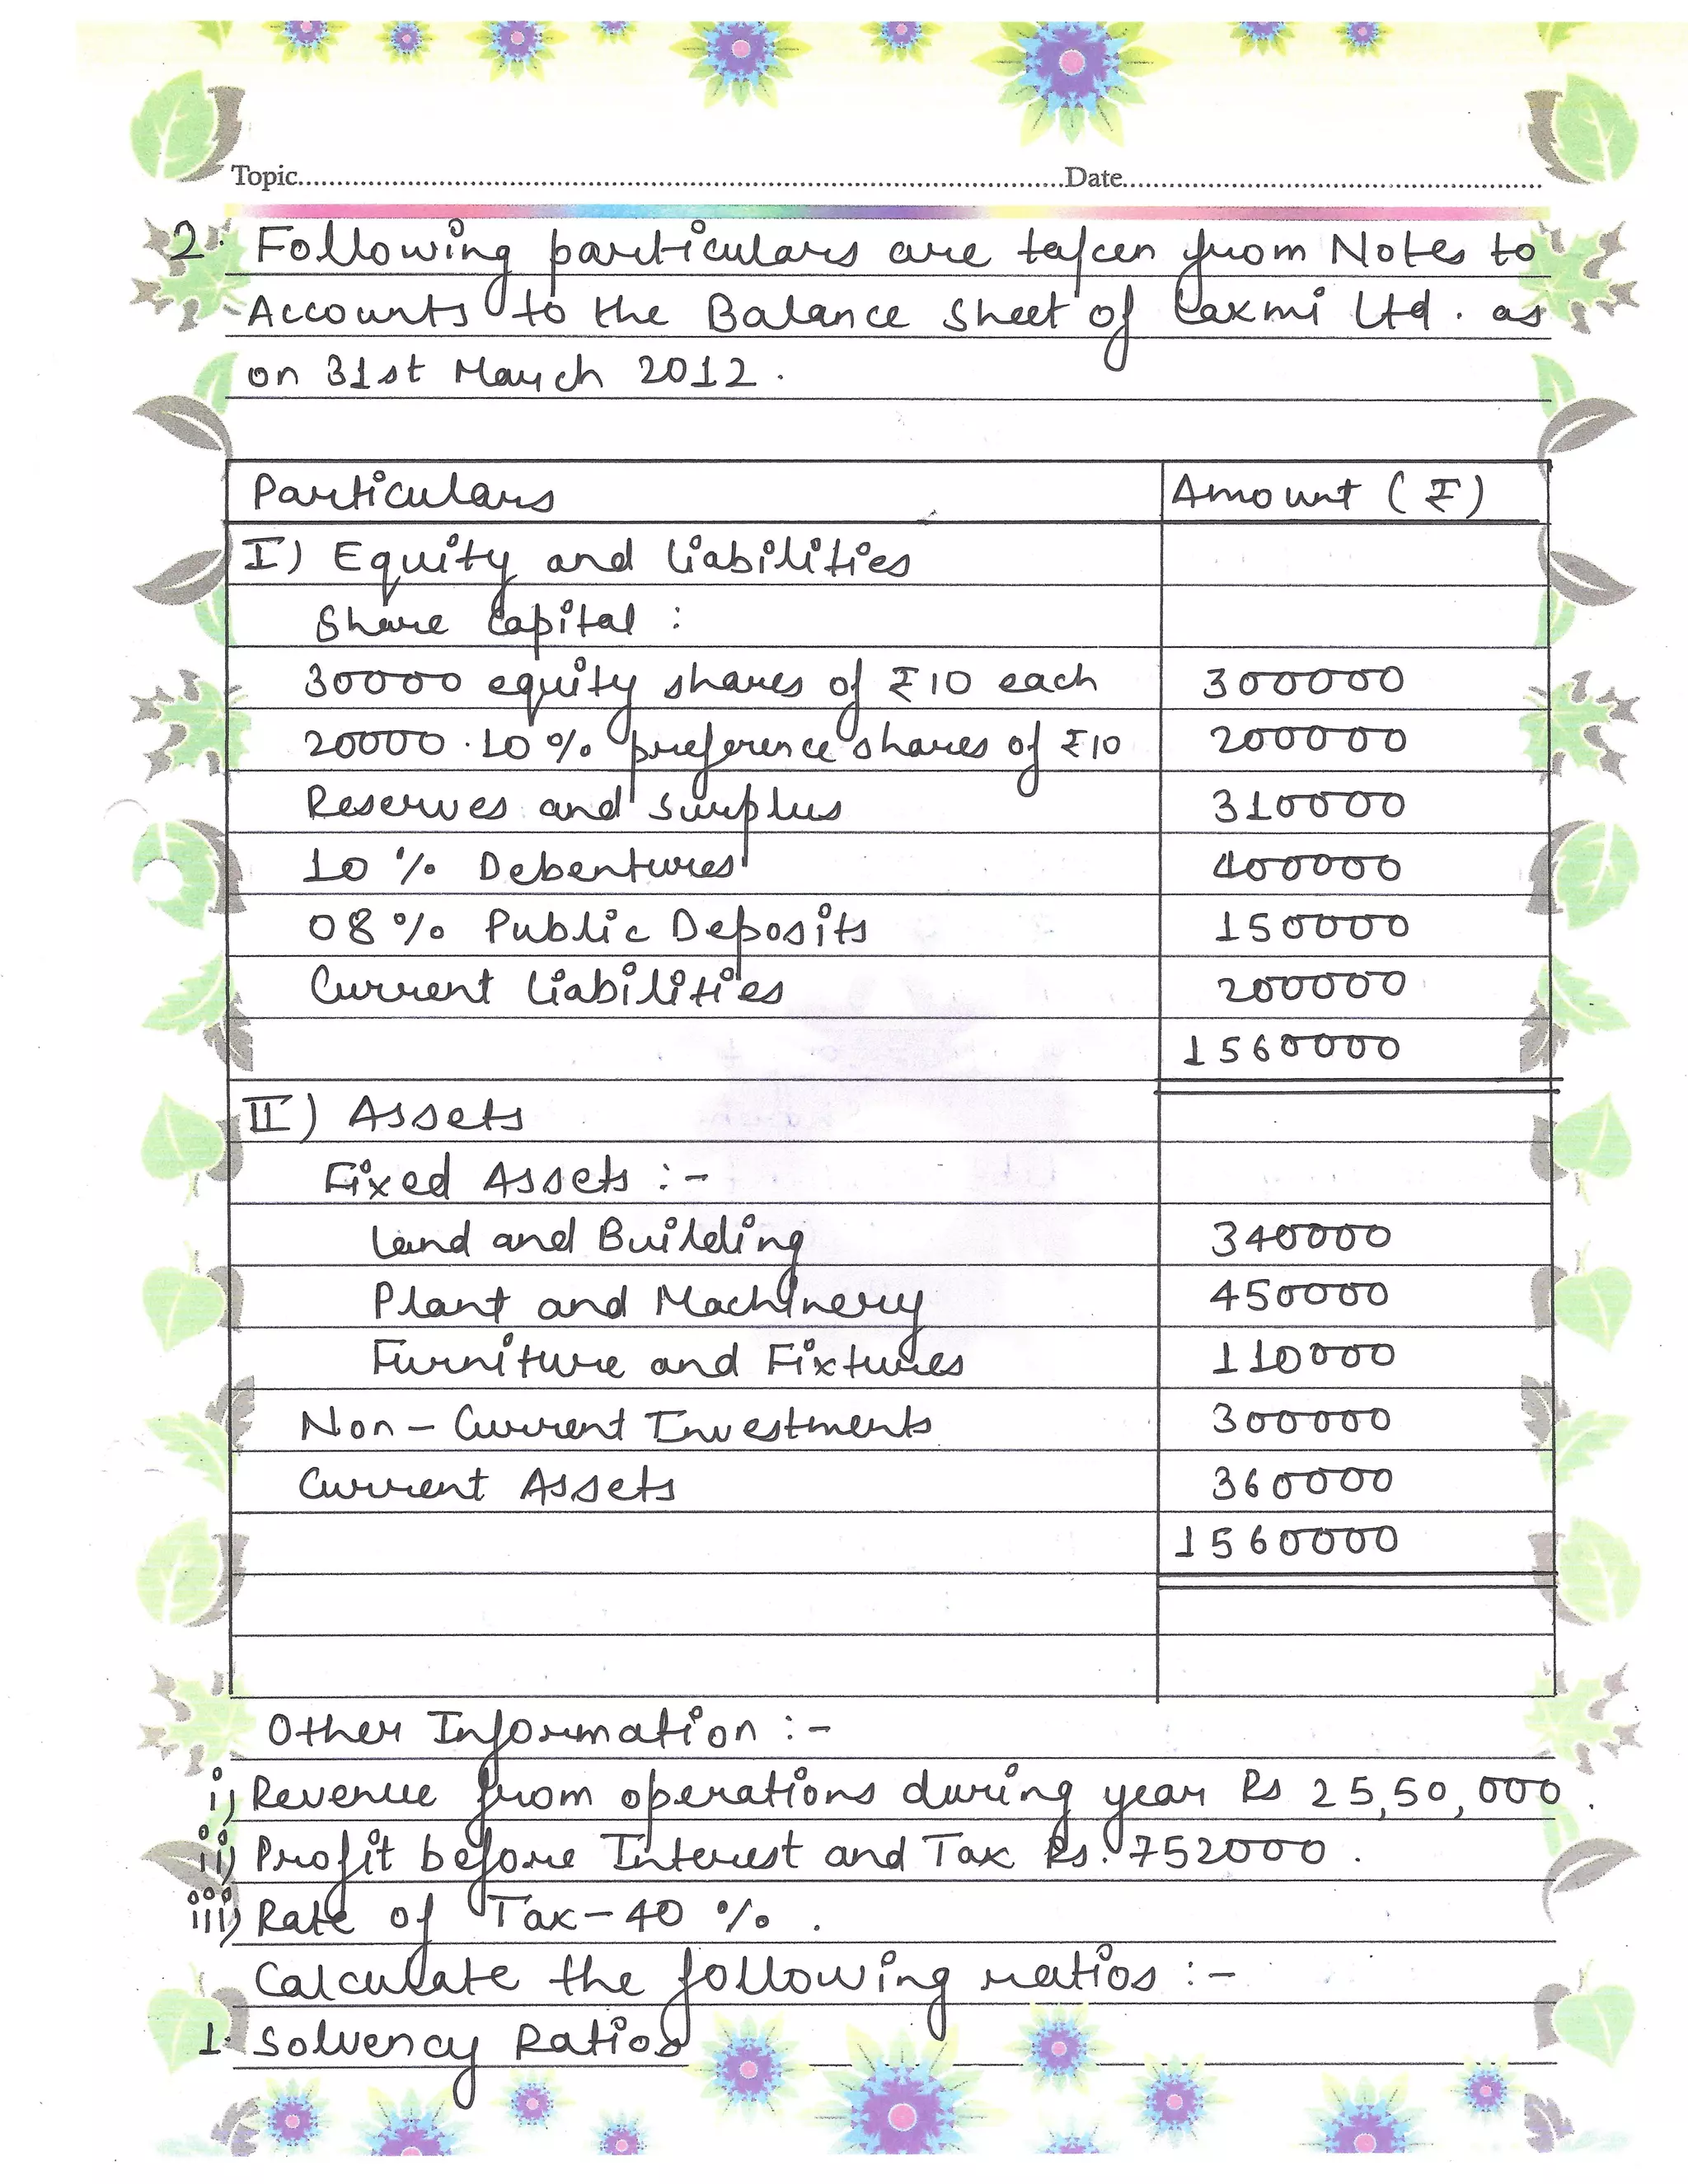 Topic..........Date..........
2. Following particulars are taken from Notes to
Accounts to the Balance Sheet of Laxmi Ltd. as
on 31st March 2012.
Particulars Amount (₹)
I) Equity and Liabilities
Share Capital :
30000 equity shares of ₹10 each 300000
20000. 10% preference shares of ₹10 200000
Reserves and Surplus 310000
10 % Debentures 400000
08% Public Deposits 150000
Current Liabilities 200000
1560000
II) Assets
Fixed Assets :-
Land and Building 340000
Plant and Machinery 450000
Furniture and Fixtures 110000
Non-Current Investments 300000
Current Assets 360000
1560000
Other Information :-
i) Revenue from operations during year Rs 25,50,000.
ii) Profit before Interest and Tax Rs. 752000.
iii) Rate of Tax-40 %.
Calculate the following ratios :-
1. Solvency Ratios